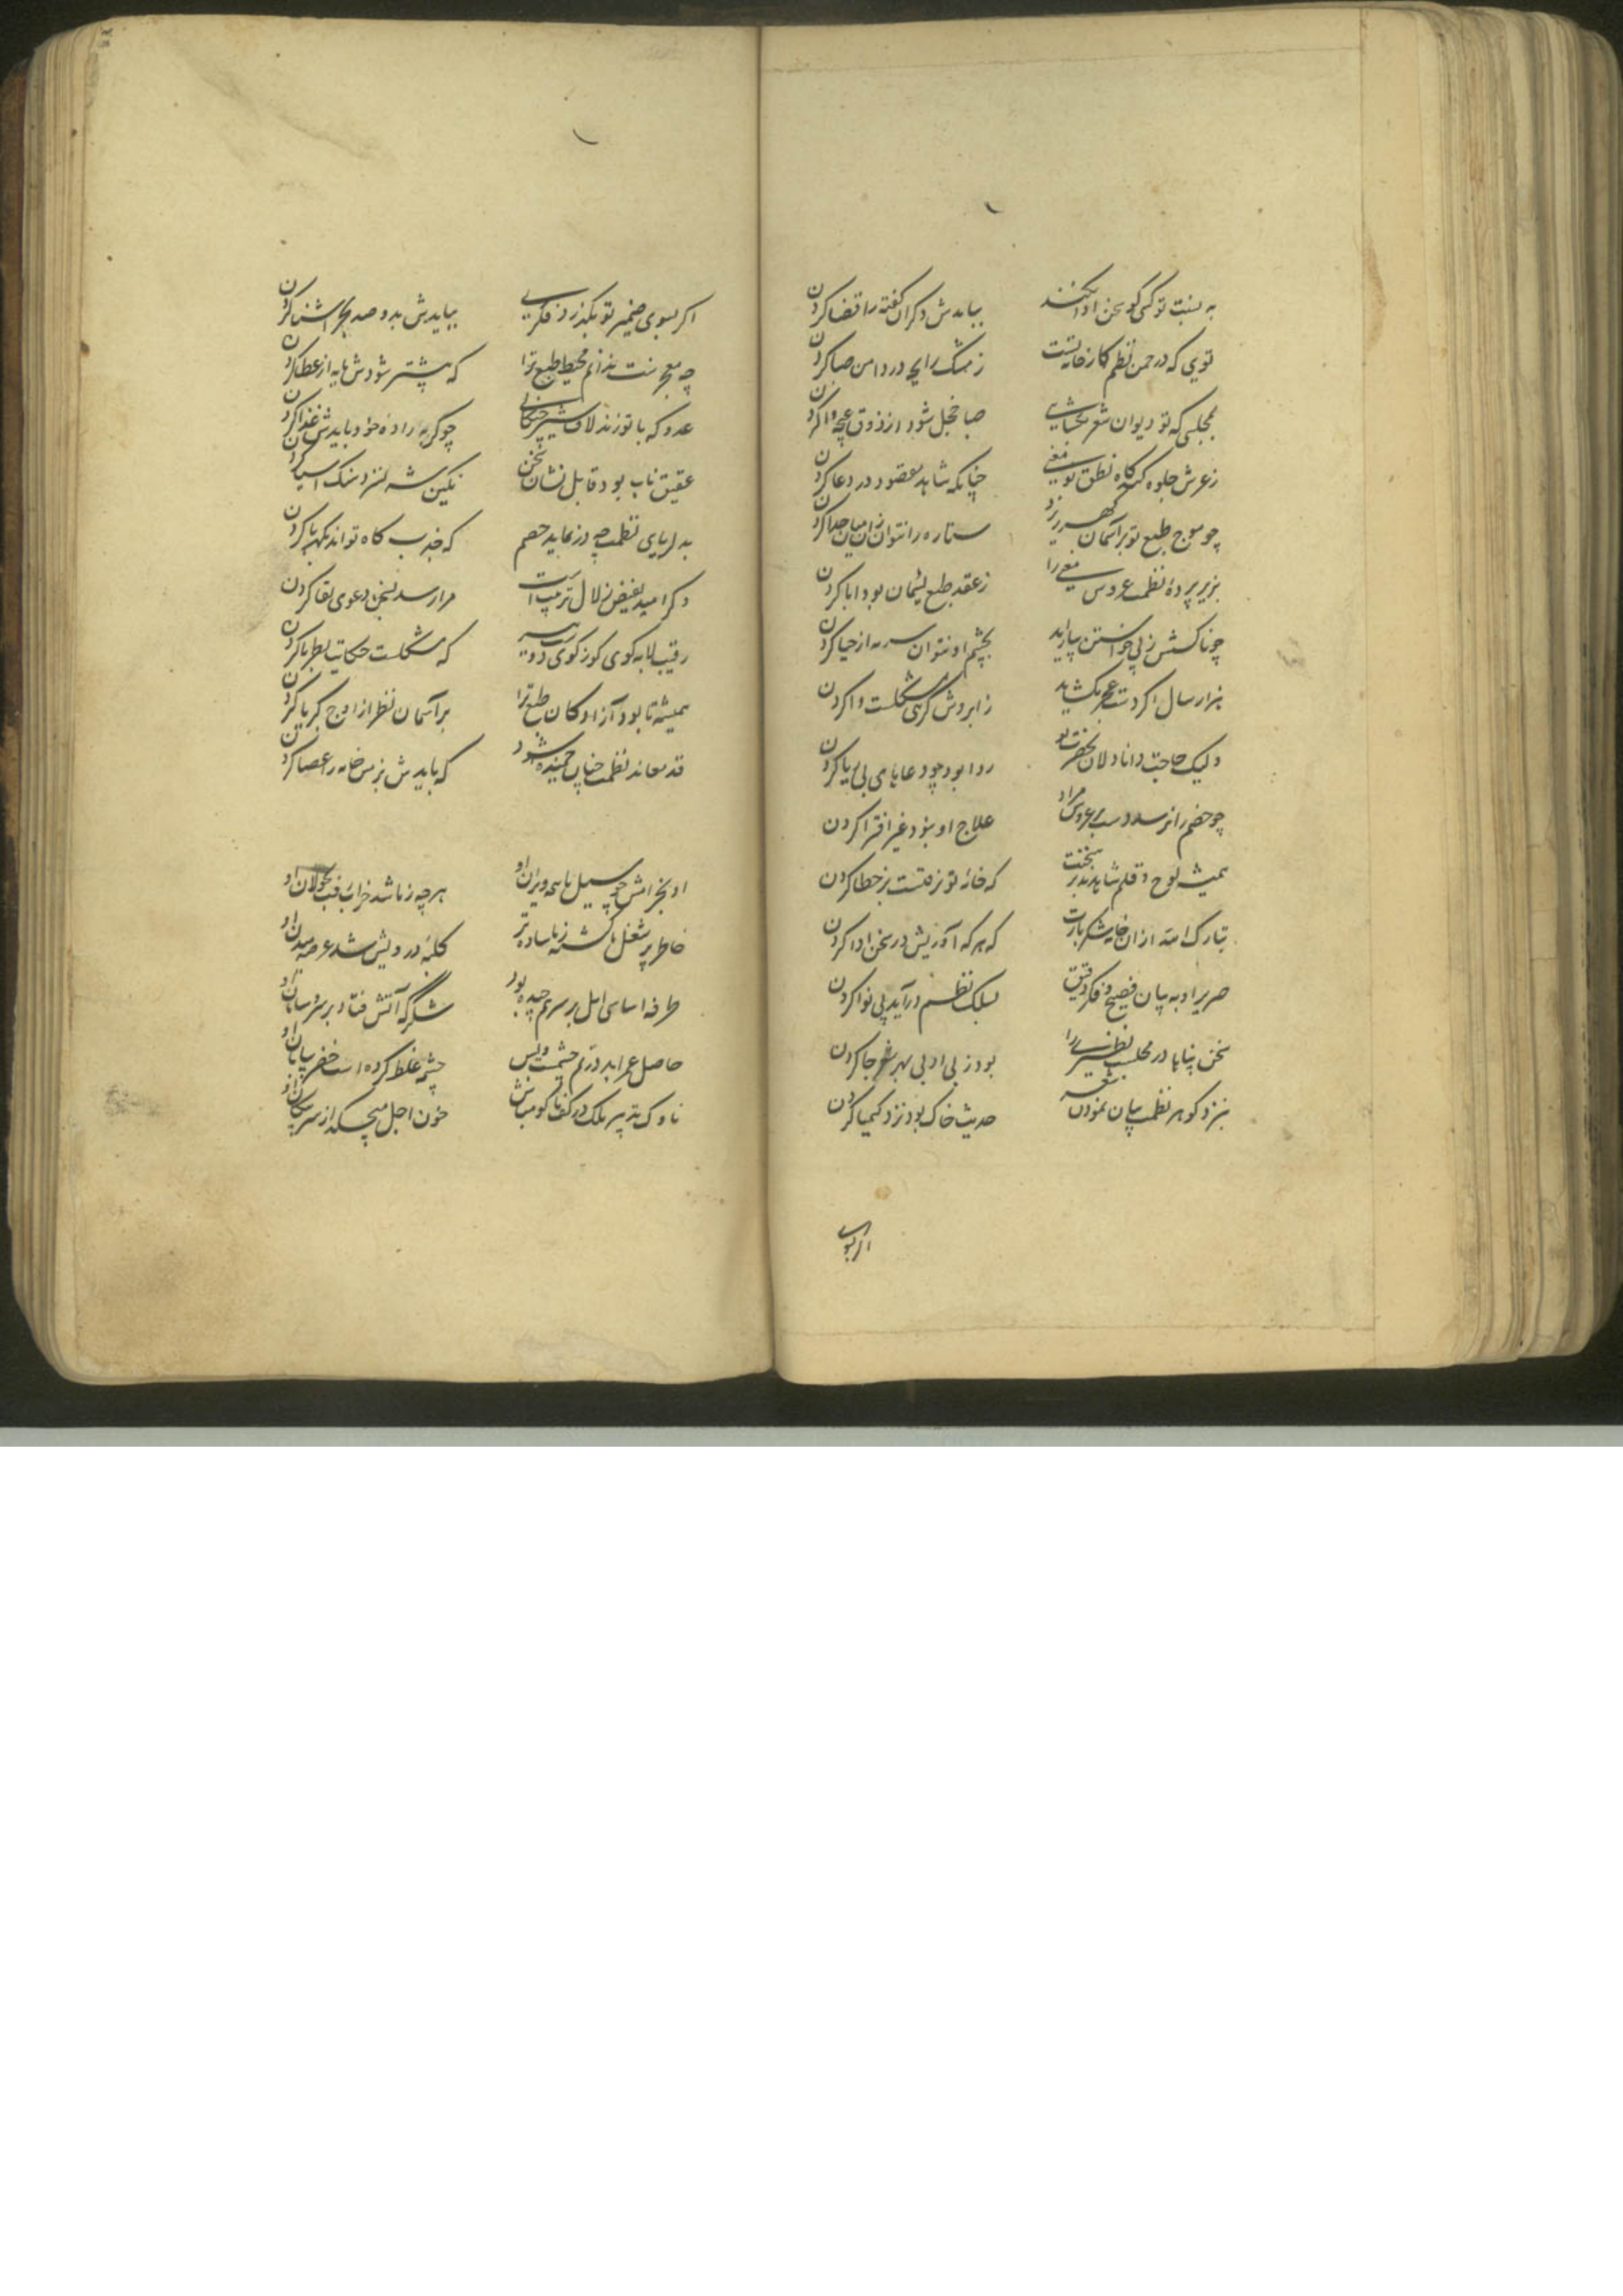 به نسبت تو کسی کو سخن ادا نکند بیایدش دگران گفته را قضا کردن
تویی که در چمن نظم کار خامهٔ تست ز مشک رایحه در دامن صبا کردن
بمجلسی که تو دیوان شعر بگشایی صبا خجل شود از ذوق غنچه وا کردن
ز عرش جلوه کند گاه نطق تو معنی چنانکه شاهد مقصود در دعا کردن
چو موج طبع تو بر آسمان گهر ریزد ستاره را نتوان زان میان جدا کردن
بزیر پردهٔ نظمت عروس معنی را ز عقد طبع لئیمان بود ابا کردن
چو ناکسش ز پی خواستن بیاراید بچشم او نتوان سرمه از حیا کردن
هزار سال اگر دست عجز بگشاید ز ابروش گرهی مشکلست وا کردن
ولیک حاجت دانا دلان بحضرت تو روا بود چو دعاهای بی ریا کردن
چو خصم را نرسد دست بر عروس مراد علاج او نبود غیر افترا کردن
همیشه لوح و قلم شاهدند بر سخنت که خانهٔ تو نرفتست بر خطا کردن
تبارک الله ازان خامهٔ شکر بارت که هر که آوریش در سخن ادا کردن
صریر او به بیان فصیح و فکر دقیق بسلک نظم درآید پی نوا کردن
سخن پناها در مجلست نظیری را بود ز بی ادبی بهر شعر جا کردن
بنزد گوهر نظمت بیان نمودن شعر حدیث خاک بود نزد کیمیا کردن
اگر بسوی
اگر بسوی ضمیر تو بگذرد فکری بیایدش بدو صد بحر آشنا کردن
چه معجزست ندانم محیط طبع ترا که بیشتر شودش مایه از عطا کردن
عدو که با تو زند لاف شیر چنگالی چو گربه زادهٔ خود بایدش غذا کردن
عقیق ناب بود قابل نشان سخن نگین شه نسزد سنگ آسیا کردن
به دریای نظمت چه در نماید خصم که جذب کاه تواند نه کهربا کردن
دگر امید بفیض زلال تربیت است مرا رسد بسخن دعوی بقا کردن
رقیب لابه گوی کوز کوی دو که مشکلست حکایت بطرز ما کردن
همیشه تا بود آزادگان طبع ترا بر آسمان نظر از اوج کبریا کردن
قد معاند نظمت چنان خمیده شود که بایدش ز من خامه را عصا کردن
او بخرامش چو سیل ما همه ویران او هرچه ز ما شد خراب رفت بجولان او
خاطر پر شغل ما گشته ز ما ساده تر کلبهٔ درویش شد عرصهٔ میدان او
طرفه اساسی امل بر سر هم چیده بود شکر که آتش فتاد بر سر و سامان او
حاصل عمر ابد در نم چشمست و بس چشمه غلط کرده است خضر بیابان او
ناوک تدبیر ملک در کف ما گو مباش خون اجل میچکد از سر پیکان او